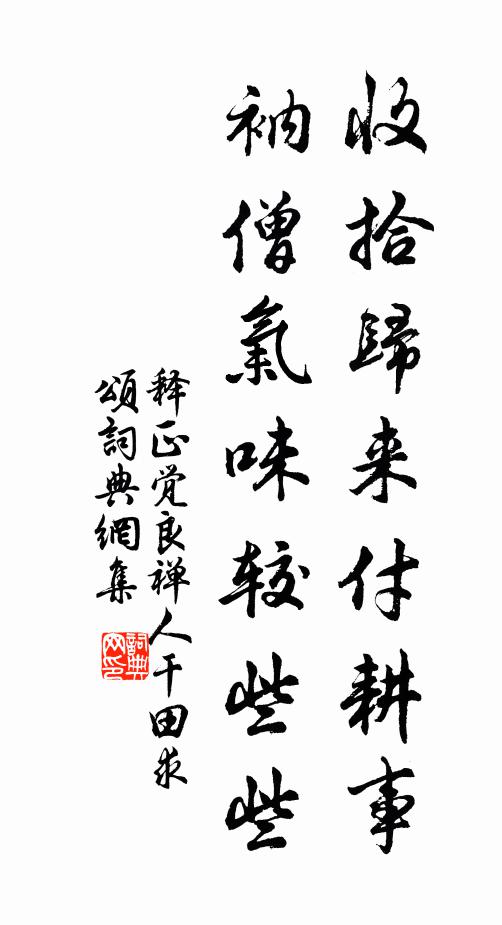 收拾歸来付耕事
衲僧氣味较些些
释正觉良禅人干田求
頌詞典網集
詞典网印